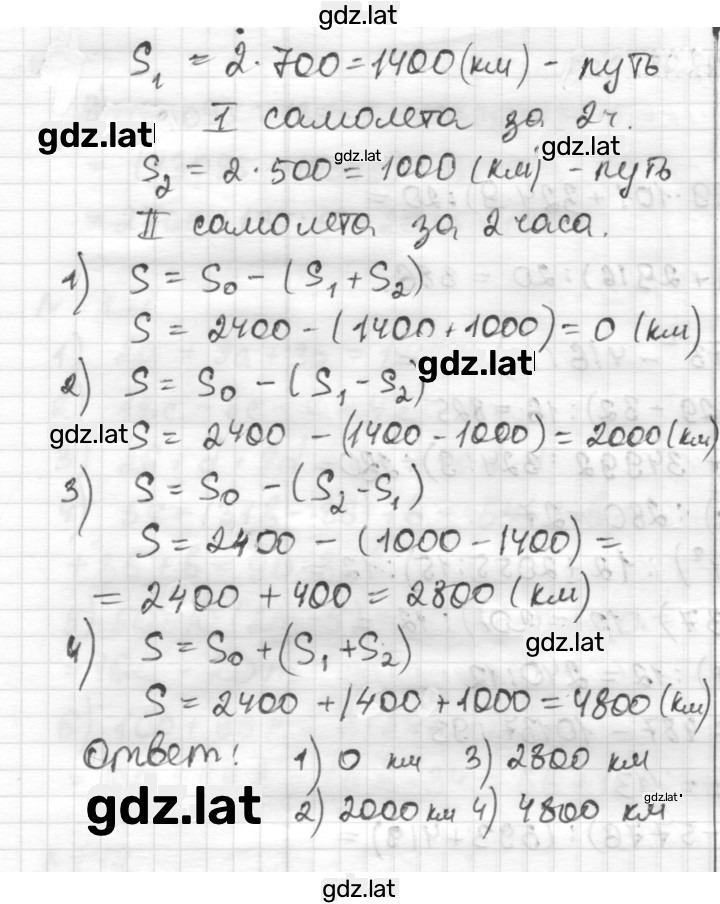 gdz.lat
S₁ = 2·700=1400(км) - путь
gdz.lat I самолета за 2ч.
gdz.lat gdz.lat
S₂ = 2·500 = 1000 (км) - путь
II самолета за 2 часа.
1) S = S₀ - (S₁+S₂)
S = 2400 - (1400+1000) = 0 (км)
gdz.lat
2) S = S₀ - (S₁ - S₂)
gdz.lat S = 2400 - (1400 - 1000) = 2000 (км)
3) S = S₀ - (S₂ - S₁)
S = 2400 - (1000 - 1400) =
= 2400 + 400 = 2800 (км)
4) S = S₀ + (S₁ + S₂) gdz.lat
S = 2400 + 1400 + 1000 = 4800 (км)
Ответ: 1) 0 км 3) 2800 км
gdz.lat 2) 2000 км 4) 4800 км gdz.lat
gdz.lat